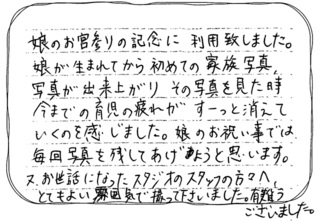 娘のお宮参りの記念に利用致しました。
娘が生まれてから初めての家族写真、
写真が出来上がり その写真を見た時
今までの育児の疲れが すーっと消えて
いくのを感じました。娘のお祝い事では
毎回写真を残してあげようと思います。
又、お世話になったスタジオのスタッフの方々へ
とてもよい雰囲気で撮って下さいました。有難う
ございました。